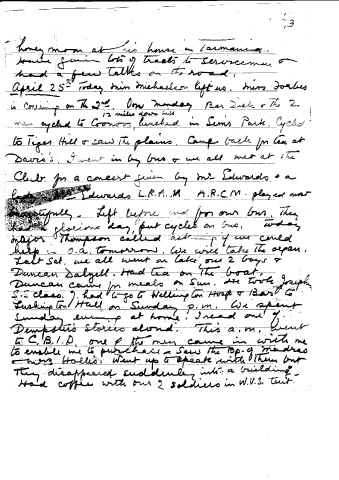 3
honey moon at his house in Tasmania.
Have given lots of tracts to servicemen &
had a few talks on the road.
April 25th Today Miss Michaelson left us. Miss Forbes
is coming on the 2nd. On Monday Bar Dick & the 2
12 miles down hill
men cycled to Coonoor, lunched in Sim's Park, cycled
to Tiger Hill & saw the plains. Came back for tea at
Davis's. I went in by bus & we all met at the
Club for a concert given by Mr Edwards & a
Edwards L.R.A.M A.R.C.M. played most
beautifully. Left before end for our bus. They
had a glorious day, put cycles on bus. Today
Major Thompson called asking if we could
help in O.A. tomorrow. We will take the organ.
Last Sat. we all went on lake, our 2 boys &
Duncan Dalzell. Had tea on the boat.
Duncan came for meals on Sun. He took Joseph
S.S. class. I had to go to Wellington Hosp & Bar to
Lushington Hall on Sunday p.m. We spent
Sunday evening at home. I read one of
Dempster's stories aloud. This a.m. went
to C.B.I.D. one of the men came in with me
to enable me to purchase & saw the Bp. of Madras
& Mrs Hollis. Went up to speak with them but
they disappeared suddenly into a building.
Had coffee with our 2 soldiers in W.V.S. tent